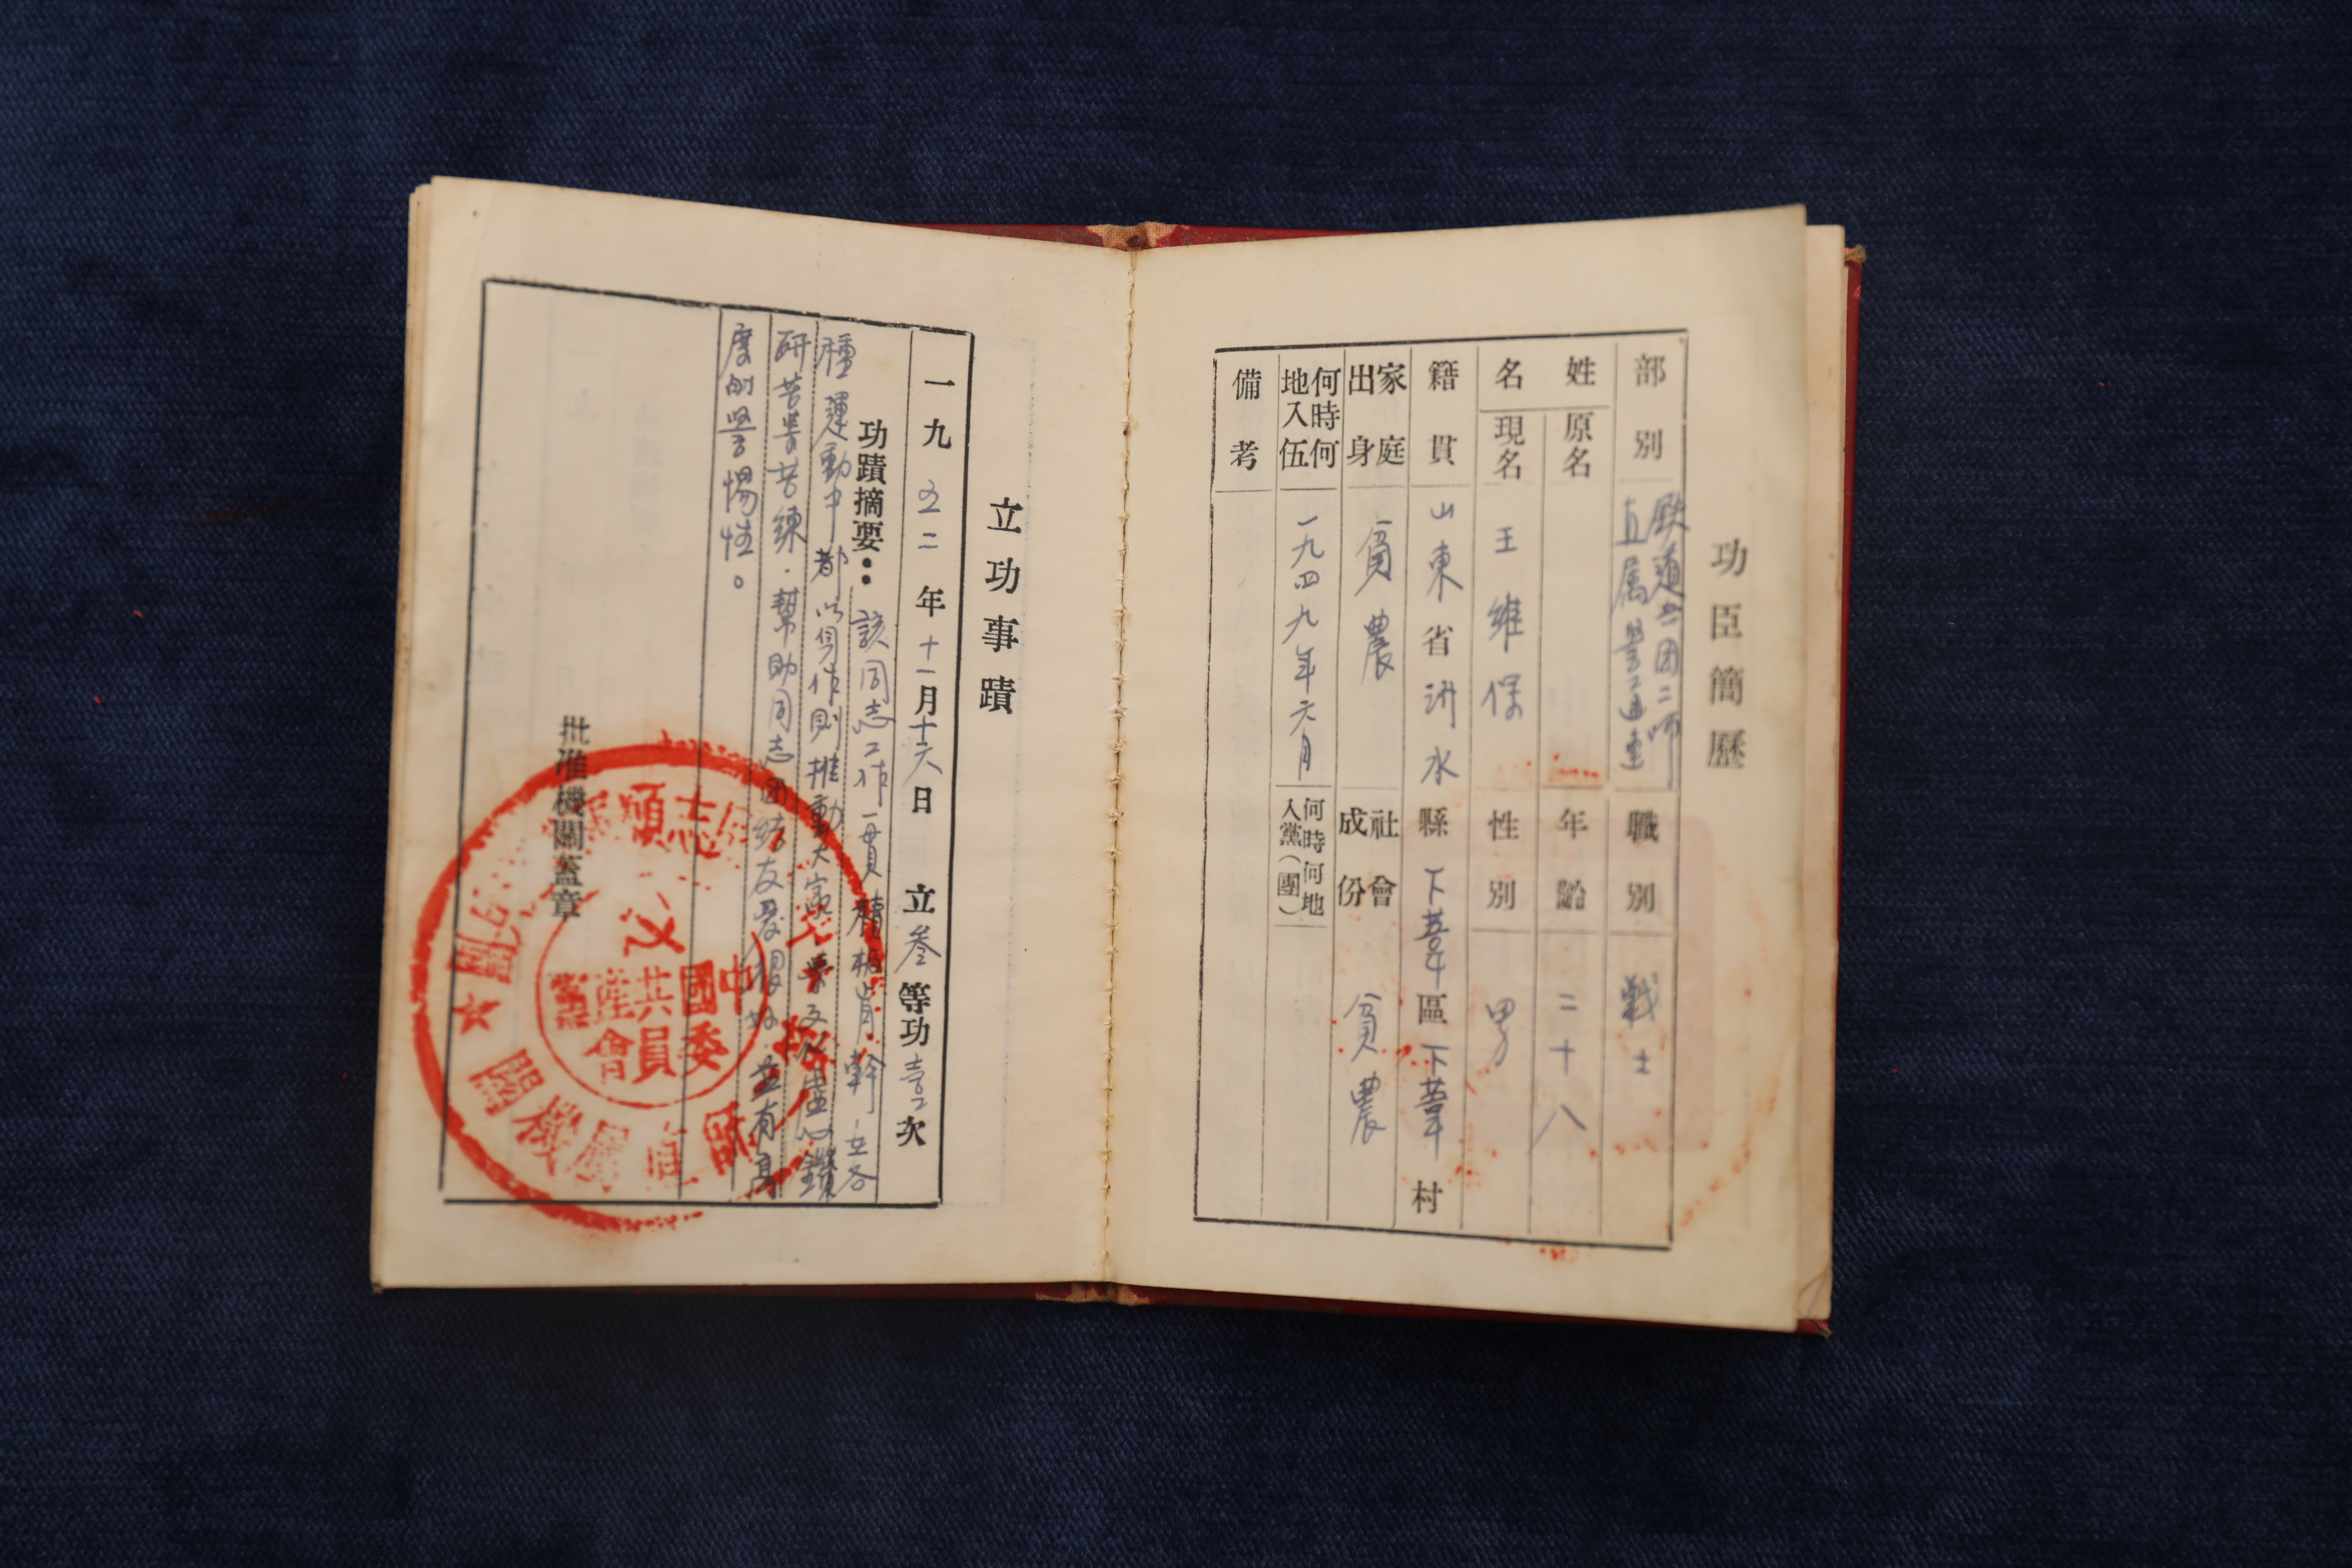 功臣簡歷
部別 鉄道兵团二師直属警通連 職別 戰士
姓名 原名 年齡 二十八
現名 王維保 性別 男
籍貫 山東省沂水縣下葦區下葦村
家庭出身 貧農 社會成份 貧農
何時何地入伍 一九四九年六月 何時何地入黨(團)
備考
立功事蹟
一九五二年十一月十六日 立叁等功壹次
功蹟摘要：該同志工作一貫積極肯幹，在各
種運動中都以身作則推動大家，學文化虚心鑽
研苦學苦練．幫助同志団结友爱很好．並有高
度的警惕性。
批准機關蓋章
志願
師直屬機關
中國共產黨
委員會